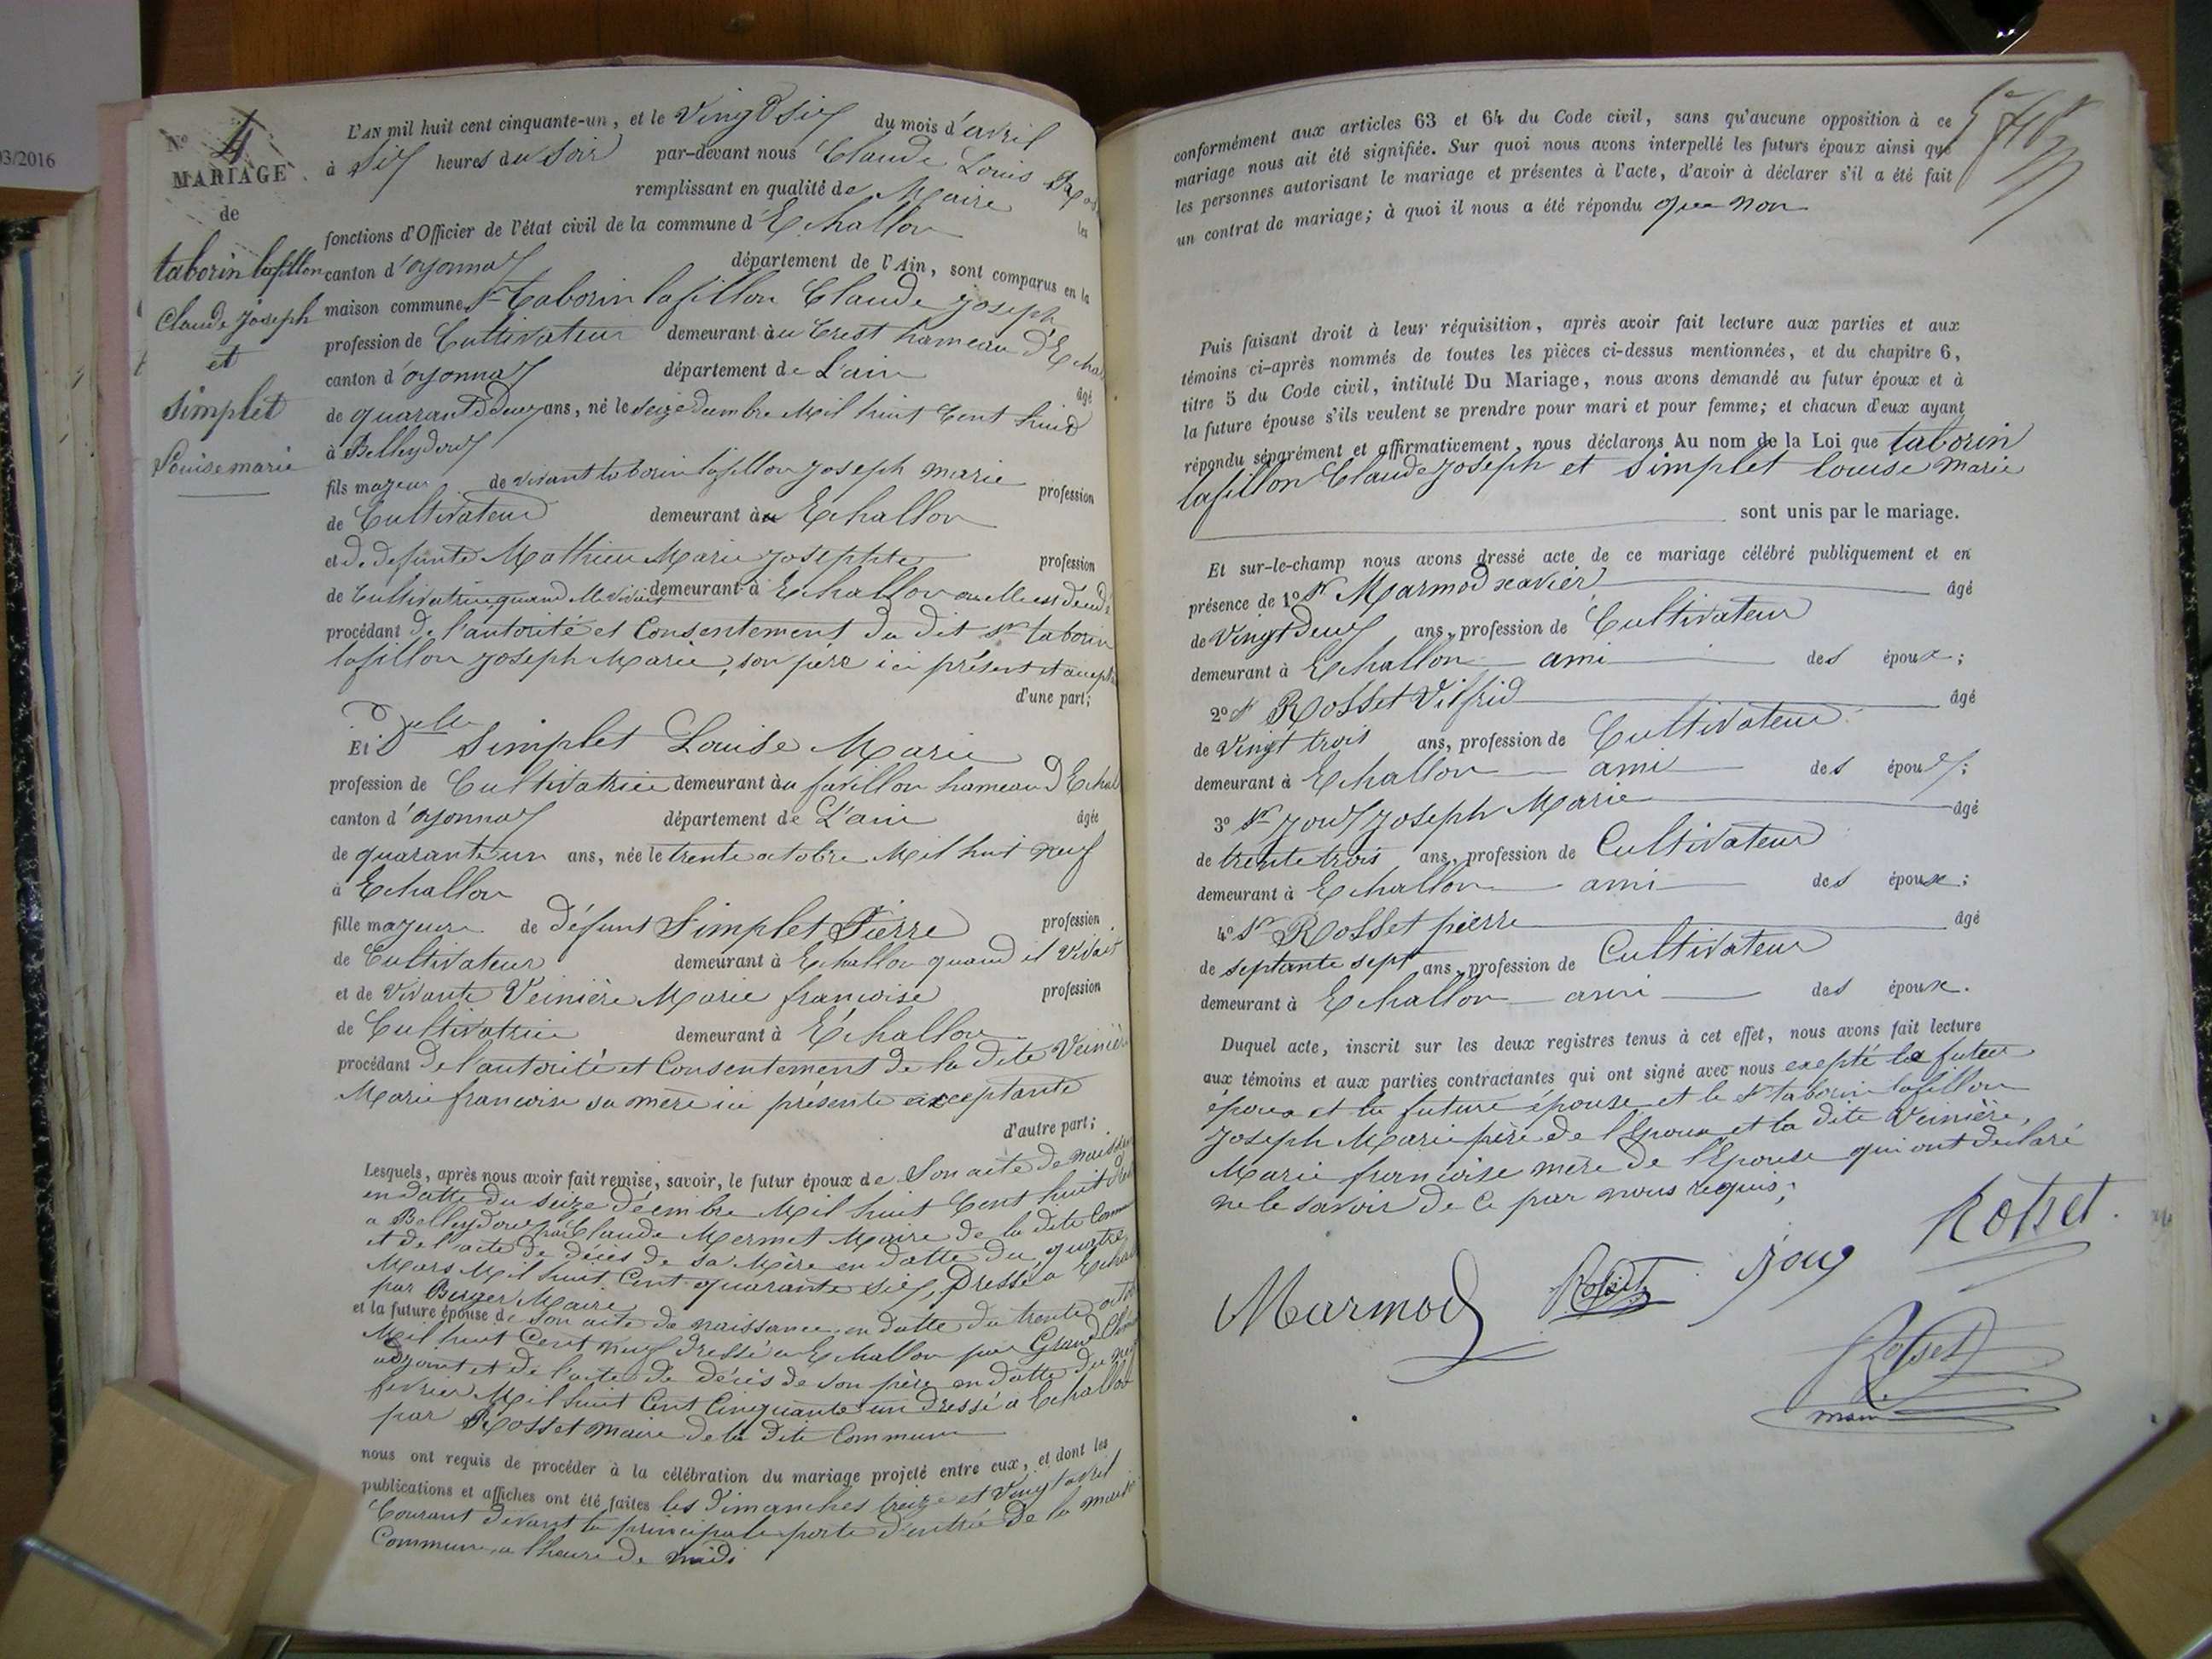 03/2016
N° 4
MARIAGE
de
taborin lafillon
Claude joseph
et
Simplet
Louise marie
L'AN mil huit cent cinquante-un, et le vingt six du mois d'avril
à Six heures du Soir par-devant nous Claude Louis
remplissant en qualité de Maire les
fonctions d'Officier de l'état civil de la commune d'Echallon
canton d'oyonnax département de l'Ain, sont comparus en la
maison commune Sr taborin lafillon Claude joseph
profession de Cultivateur demeurant au Crest hameau d'Echal
canton d'oyonnax département de L'ain âgé
de quarante deux ans, né le Seize decembre Mil huit Cent huit
à Belleydoux
fils majeur de vivant taborin lafillon joseph marie profession
de Cultivateur demeurant à Echallon
et de defunte Mathieu Marie josephte profession
de Cultivatrice quand Elle vivait demeurant à Echallon ou elle est décédé
procédant de l'autorité et Consentement du dit Sr taborin
lafillon joseph Marie, son père ici présent et accept
d'une part;
Et Delle Simplet Louise Marie
profession de Cultivatrice demeurant au favillon hameau d'Echal
canton d'oyonnax département de L'ain âgée
de quarante un ans, née le trente octobre Mil huit neuf
à Echallon
fille majeure de défunt Simplet Pierre profession
de Cultivateur demeurant à Echallon quand il vivait
et de vivante Veinière Marie francoise profession
de Cultivatrice demeurant à Echallon
procédant de l'autorité et Consentement de la dite Veinière
Marie francoise sa mère ici présente acceptante
d'autre part;
Lesquels, après nous avoir fait remise, savoir, le futur époux de Son acte de naiss
en datte du seize décembre Mil huit Cent huit
a Belleydoux par Claude Mermet Maire de la dite Comm
et de l'acte de décès de sa Mère en datte du quatre
Mars Mil huit Cent quarante six, Dressé a Echall
par Burger Maire
et la future épouse de Son acte de naissance en datte du trente octob
Mil huit Cent neuf dressé a Echallon par Grand
adjoint et de l'acte de décès de son père en datte du
fevrier Mil huit Cent Cinquante un dressé a Echallon
par Rosset maire de la dite Commune
nous ont requis de procéder à la célébration du mariage projeté entre eux, et dont les
publications et affiches ont été faites les dimanches treize et vingt avril
Courant devant la principale porte d'entrée de la maison
Commune a l'heure de midi
conformément aux articles 63 et 64 du Code civil, sans qu'aucune opposition à ce
mariage nous ait été signifiée. Sur quoi nous avons interpellé les futurs époux ainsi que
les personnes autorisant le mariage et présentes à l'acte, d'avoir à déclarer s'il a été fait
un contrat de mariage; à quoi il nous a été répondu que non
Puis faisant droit à leur réquisition, après avoir fait lecture aux parties et aux
témoins ci-après nommés de toutes les pièces ci-dessus mentionnées, et du chapitre 6,
titre 5 du Code civil, intitulé Du Mariage, nous avons demandé au futur époux et à
la future épouse s'ils veulent se prendre pour mari et pour femme; et chacun d'eux ayant
répondu séparément et affirmativement, nous déclarons Au nom de la Loi que taborin
lafillon Claude joseph et Simplet louise marie
sont unis par le mariage.
Et sur-le-champ nous avons dressé acte de ce mariage célébré publiquement et en
présence de 1° Sr Marmod xavier âgé
de vingt deux ans, profession de Cultivateur
demeurant à Echallon ami des époux;
2° Sr Rosset Vilfrid âgé
de vingt trois ans, profession de Cultivateur
demeurant à Echallon ami des époux;
3° Sr joux joseph Marie âgé
de trente trois ans, profession de Cultivateur
demeurant à Echallon ami des époux;
4° Sr Rosset pierre âgé
de septante sept ans, profession de Cultivateur
demeurant à Echallon ami des époux.
Duquel acte, inscrit sur les deux registres tenus à cet effet, nous avons fait lecture
aux témoins et aux parties contractantes qui ont signé avec nous exepté le futur
époux et la future épouse et le Sr taborin lafillon
joseph Marie père de l'Epoux et la dite Veinière,
Marie francoise mère de l'Epouse qui ont déclaré
ne le savoir de ce par nous requis;
Marmod Rosset joux Rosset
Rosset
maire